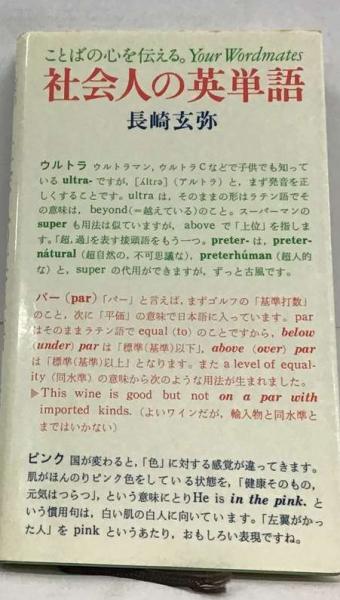 ことばの心を伝える。Your Wordmates
社会人の英単語
長崎玄弥
ウルトラ ウルトラマン,ウルトラCなどで子供でも知って
いる ultra- ですが, [ʌ́ltrə]（アルトラ）と, まず発音を正
しくすることです。ultra は, そのままの形はラテン語でそ
の意味は, beyond(=越えている)のこと。スーパーマンの
super も用法は似ていますが, above で「上位」を指しま
す。「超,過」を表す接頭語をもう一つ。preter- は, preter-
nátural（超自然の, 不可思議な）, preterhúman（超人的
な）と, super の代用ができますが, ずっと古風です。
パー（par）「パー」と言えば, まずゴルフの「基準打数」
のこと, 次に「平価」の意味で日本語に入っています。par
はそのままラテン語で equal (to) のことですから, below
(under) par は「標準(基準)以下」, above (over) par
は「標準(基準)以上」となります。また a level of equal-
ity（同水準）の意味から次のような用法が生まれました。
▷This wine is good but not on a par with
imported kinds.（よいワインだが, 輸入物と同水準と
まではいかない）
ピンク 国が変わると,「色」に対する感覚が違ってきます。
肌がほんのりピンク色をしている状態を,「健康そのもの,
元気はつらつ」, という意味にとり He is in the pink. と
いう慣用句は, 白い肌の白人に向いています。「左翼がかっ
た人」を pink というあたり, おもしろい表現ですね。